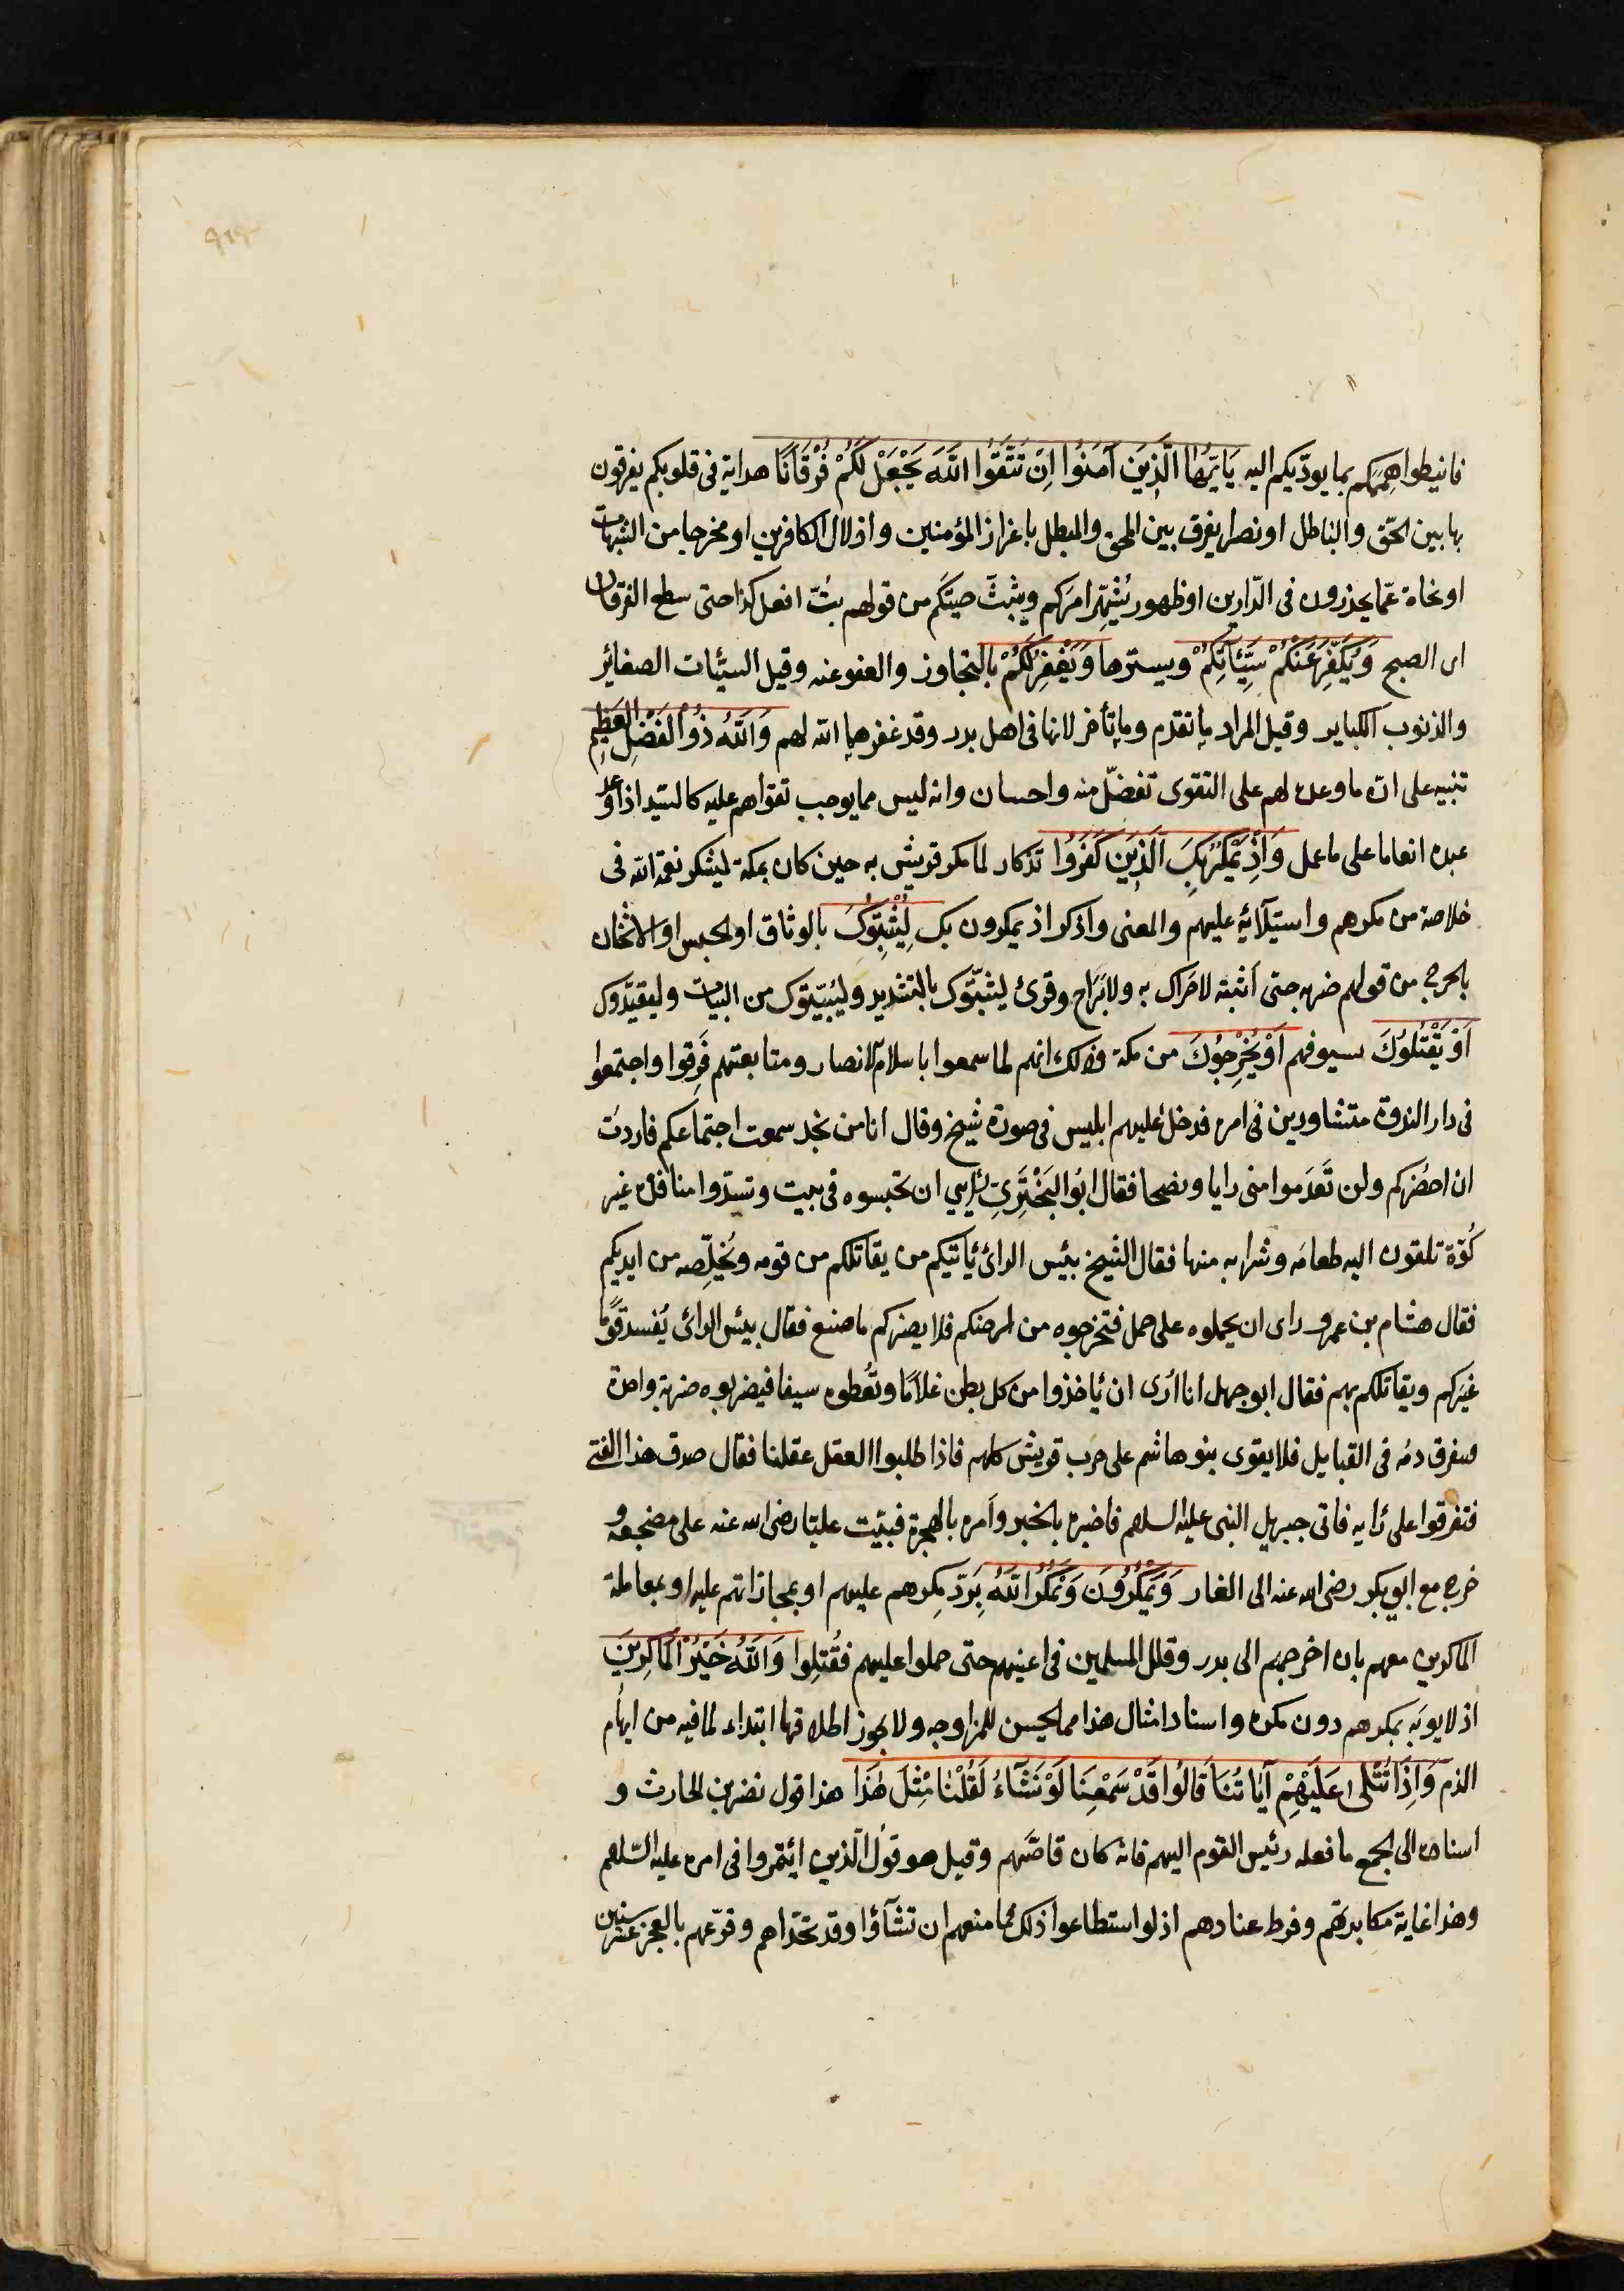 فانيطوا هممكم بما يودّيكم اليه يَا يُّهَا الَّذِينَ آمَنُوا اِنْ تَتَّقُوا اللّٰهَ يَجْعَلْ لَكُمْ فُرْقَانًا هداية فى قلوبكم يفرقون
بها بين الحّق والباطل او نصرا يفرق بين المحق والمبطل باعزاز المؤمنين واذلال الكافرين او مخرجا من الشبهات
او نجاة عمّا يحذرون فى الدّارين او ظهور يُشهّر امركم ويبثّ صيتكم من قولهم بتّ افعل كذا حتى سطع الفرقان
اى الصبح وَيُكَفِّرْ عَنْكُمْ سَيِّئاَتِكُمْ ويسترها وَيَغْفِرْ لَكُمْ بالتجاوز والعفو عنه وقيل السيّئات الصغائر
والذنوب الكباير وقيل المراد ما تقدم وما تأخر لانها فى اهل بدر وقد غفرهما الله لهم وَاللّٰهُ ذُو الْفَضْلِ العَظِيمِ
تنبيه على ان ما وعده لهم على التقوى تفضّل منه واحسان وانه ليس مما يوجب تقواهم عليه كالسّيد اذا وعد
عبده انعاما على ما عمل وَاِذْ يَمْكُرُ بِكَ الَّذِينَ كَفَرُوا تذكار لما مكر قريش به حين كان بمكة ليشكر نعمة الله فى
خلاصه من مكرهم واستيلآئه عليهم والمعنى واذكر اذ يمكرون بك لِيُثْبِتُوكَ بالوثاق او الحبس او الاثخان
بالجرح من قولهم ضربه حتى اثبته لاحراك به ولا براح وقرئ ليثبّتوك بالتشديد وليُبيّتوك من البيات وليقيّدوك
اَوْ يَقْتُلُوُكَ بسيوفهم اَوْ يُخْرِجُوُكَ من مكة وذلك انهم لما سمعوا باسلام الانصار ومتابعتهم فَرِقوا واجتمعوا
فى دار الندوة متشاورين فى امره فدخل عليهم ابليس فى صورة شيخ وقال انا من نجد سمعت اجتماعكم فاردت
ان احضركم ولن تَعدَموا منى رايا ونصحا فقال ابُو البَخْتَرِىِ رأيي ان تحبسوه فى بيت وتسدّوا منافذه غير
كُوّة تلقون اليه طعامه وشرابه منها فقال الشيخ بئيس الرائ يَاتيكم من يقاتلكم من قومه ويُخلّصه من ايديكم
فقال هشام بن عمرو راى ان يحملوه على جمل فتخرجوه من ارضكم فلا يضركم ما صنع فقال بيئس الرائ يُفسد قومًا
غيركم ويقاتلكم بهم فقال ابو جهل انا ارى ان يَاخذوا من كل بطن غلامًا وتُعطوه سيفا فيضربوه ضربة واحدة
فيفرق دمه فى القبايل فلا يقوى بنو هاشم على حرب قريش كلهم فاذا طلبوا العقل عقلنا فقال صدق هذا الفتى
فتفرقوا على رَايه فاتى جبريل النبى عليه السلم فاخبره بالخبر وامره بالهجرة فبيّت عليّا رضى الله عنه على مضجعه و
خرج مع ابى بكر رضى الله عنه الى الغار وَيَمْكُرُونَ وَيَمْكُرُ اللّٰهُ بِرَدّ مكرهم عليهم او بمجازاتهم عليه او بمعاملة
الماكرين معهم بان اخرجهم الى بدر وقلل المسلمين فى اعينهم حتى حملوا عليهم فقُتلوا وَاللّٰهُ خَيْرُ الْمَاكِرِينَ
اذ لا يوبَه بمكرهم دون مكره واسناد امثال هذا مما يحسن للمزاوجه ولا يجوز اطلاقها ابتداء لما فيه من ايهام
الذم وَاِذَا تُتْلٰى عَلَيْهِمْ آيَاتُنَا قَالُوا قَدْ سَمِعْنَا لَوْ نَشَآءُ لَقُلْنَا مِثْلَ هٰذَا هذا قول نضر بن الحارث و
اسناده الى الجمع ما فعله رئيس القوم اليهم فانه كان قاصّهم وقيل هو قول الذين ائتمروا فى امره عليه السّلم
وهذا غاية مكابرتهم وفرط عنادهم اذ لو استطاعوا ذلك فما منعهم ان تشآؤا وقد تحدّاهم وقرّعهم بالعجز عشر سنين